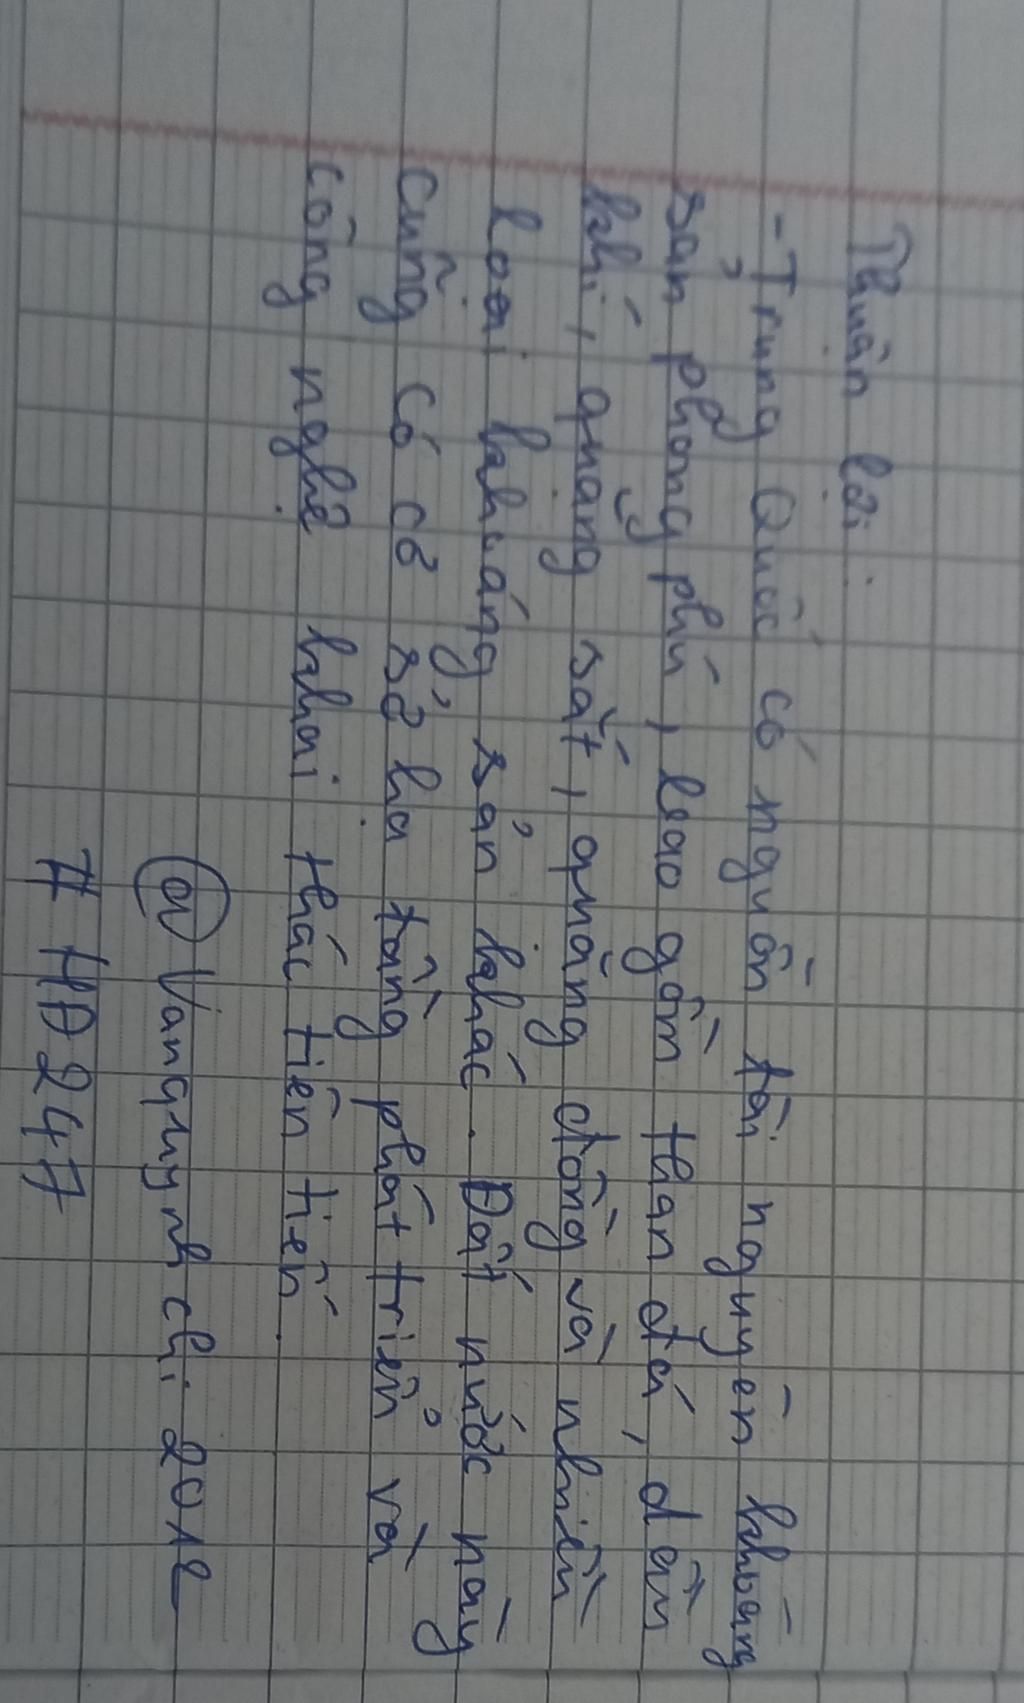 Thuận lợi:
- Trung Quốc có nguồn tài nguyên khoáng
sản phong phú, bao gồm than đá, dầu
khí, quặng sắt, quặng đồng và nhiều
loại khoáng sản khác. Đất nước này
cũng có cơ sở hạ tầng phát triển và
công nghệ khai thác tiên tiến.
@Vanquynhchi2012
#HĐ247